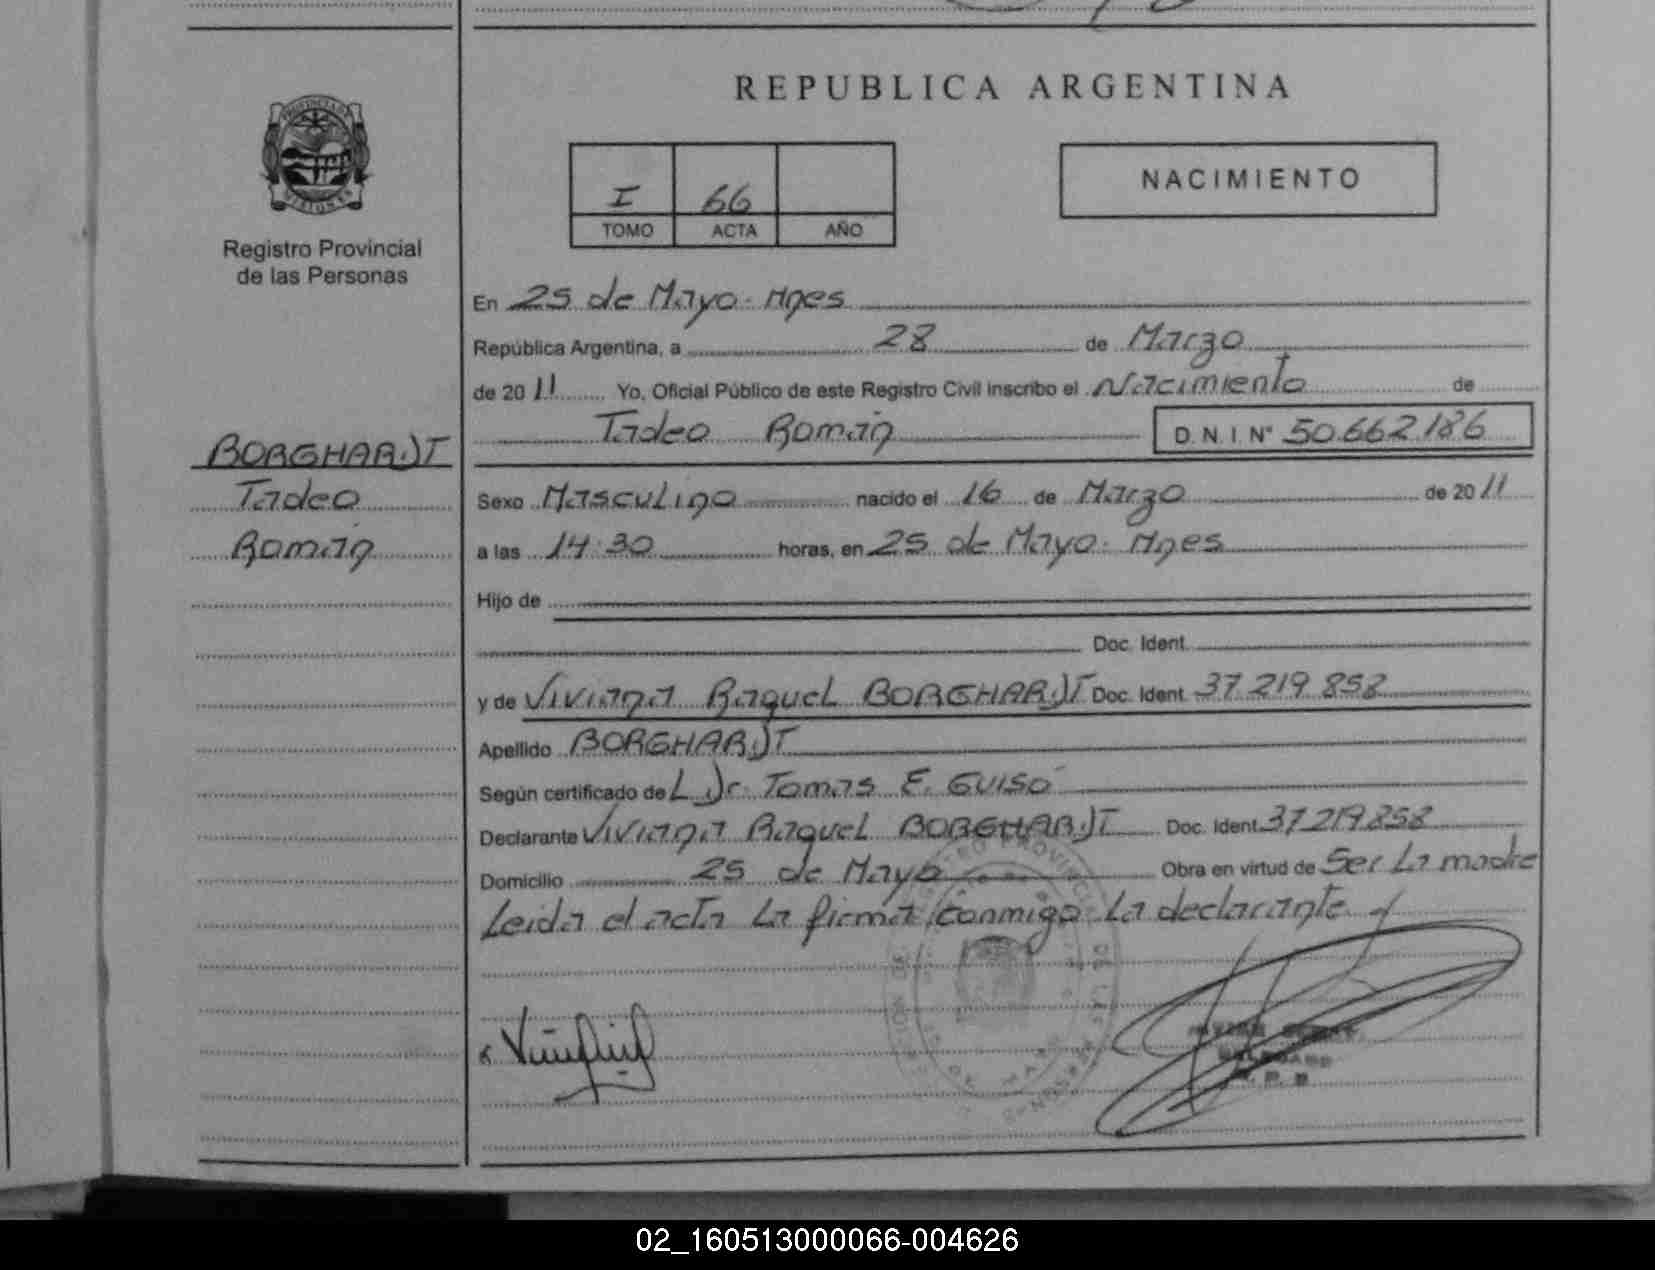 REPUBLICA ARGENTINA
PROVINCIA DE MISIONES
Registro Provincial
de las Personas
I 66
TOMO ACTA AÑO
NACIMIENTO
En 25 de Mayo. Mnes
República Argentina, a 28 de Marzo
de 2011 Yo, Oficial Público de este Registro Civil inscribo el Nacimiento de
Tadeo Román D.N.I. Nº 50.662.186
BORGHARDT
Tadeo
Román
Sexo Masculino nacido el 16 de Marzo de 2011
a las 14:30 horas, en 25 de Mayo. Mnes
Hijo de
Doc. Ident.
y de Viviana Raquel BORGHARDT Doc. Ident. 37.219.858
Apellido BORGHARDT
Según certificado del Dr. Tomas E. Guiso
Declarante Viviana Raquel BORGHARDT Doc. Ident. 37.219.858
Domicilio 25 de Mayo Obra en virtud de Ser La madre
Leida el acta La firma conmigo La declarante
02_160513000066-004626